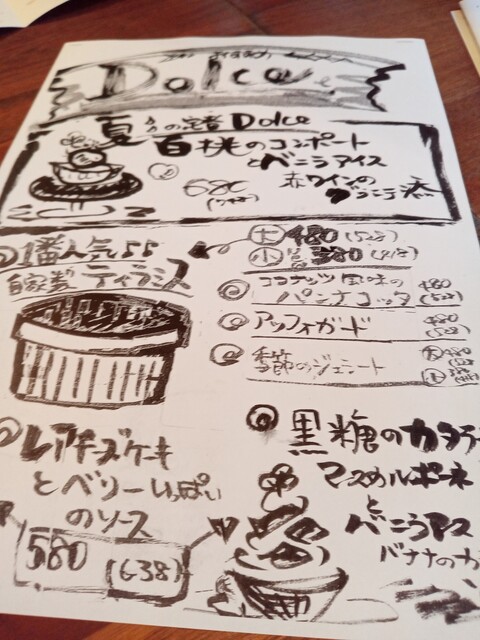 Dolce
夏の定番 Dolce
白桃のコンポート
とバニラアイス
赤ワインの
グラニテ添
680
(748)
1番人気
自家製 ティラミス
大 480 (528)
小 380 (418)
ココナッツ風味の
パンナコッタ
480
(528)
アッフォガード
480
(528)
季節のジェラート
大 480
(528)
小
レアチーズケーキ
とベリーいっぱい
のソース
580 (638)
黒糖のカタラーナ
マスカルポーネ
と
バニラアイス
バナナの